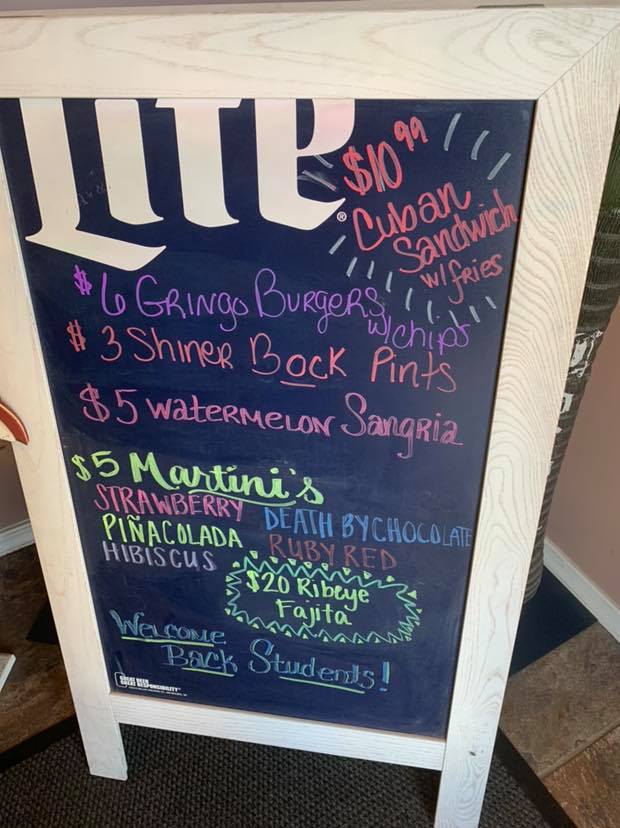 Lite®
$10.99
Cuban
Sandwich
w/fries
$6 GRINGO BURGERS
w/chips
$3 SHINER BOCK Pints
$5 WATERMELON Sangria
$5 Martini's
STRAWBERRY DEATH BY CHOCOLATE
PIÑACOLADA RUBY RED
HIBISCUS
$20 Ribeye
Fajita
WELCOME
Back Students!
GREAT BEER
GREAT RESPONSIBILITY®